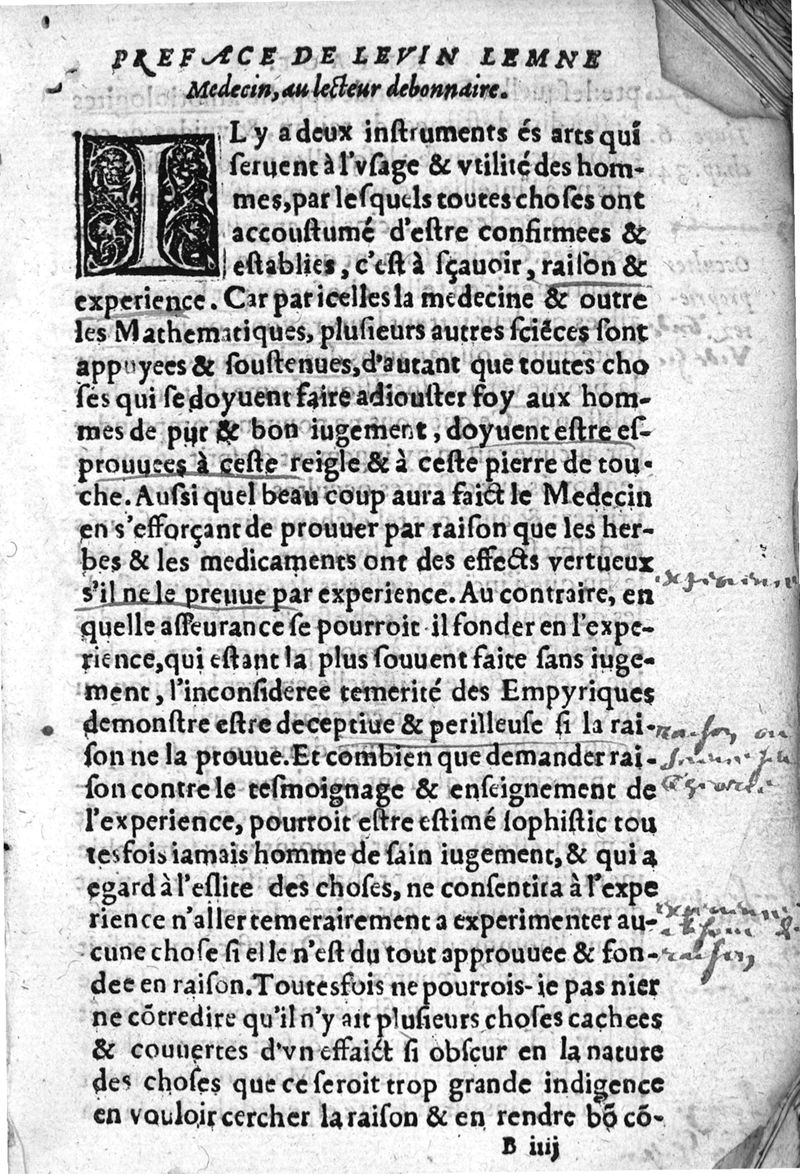 PREFACE DE LEVIN LEMNE
Medecin, au lecteur debonnaire.
IL y a deux inſtruments és arts qui
ſeruent à l'vſage & vtilité des hom-
mes, par leſquels toutes choſes ont
accouſtumé d'eſtre confirmees &
eſtablies, c'eſt à ſçauoir, raiſon &
experience. Car par icelles la medecine & outre
les Mathematiques, pluſieurs autres ſciēces ſont
appuyees & ſouſtenues, d'autant que toutes cho
ſes qui ſe doyuent faire adiouſter foy aux hom-
mes de pur & bon iugement, doyuent eſtre eſ-
prouuees à ceſte reigle & à ceſte pierre de tou-
che. Auſsi quel beau coup aura faict le Medecin
en s'efforçant de prouuer par raiſon que les her-
bes & les medicaments ont des effects vertueux
s'il ne le preuue par experience. Au contraire, en
quelle aſſeurance ſe pourroit il fonder en l'expe-
rience, qui eſtant la plus ſouuent faite ſans iuge-
ment, l'inconſideree temerité des Empyriques
demonſtre eſtre deceptiue & perilleuſe ſi la rai-
ſon ne la prouue. Et combien que demander rai-
ſon contre le teſmoignage & enſeignement de
l'experience, pourroit eſtre eſtimé ſophiſtic tou
tesfois iamais homme de ſain iugement, & qui a
egard à l'eſlite des choſes, ne conſentira à l'expe
rience n'aller temerairement a experimenter au-
cune choſe ſi elle n'eſt du tout approuuee & fon-
dee en raiſon. Toutesfois ne pourrois-ie pas nier
ne cōtredire qu'il n'y ait pluſieurs choſes cachees
& couuertes d'vn effaict ſi obſcur en la nature
des choſes que ce ſeroit trop grande indigence
en vouloir cercher la raiſon & en rendre bō cō-
B iiij
experience
raiſon ou
raiſon